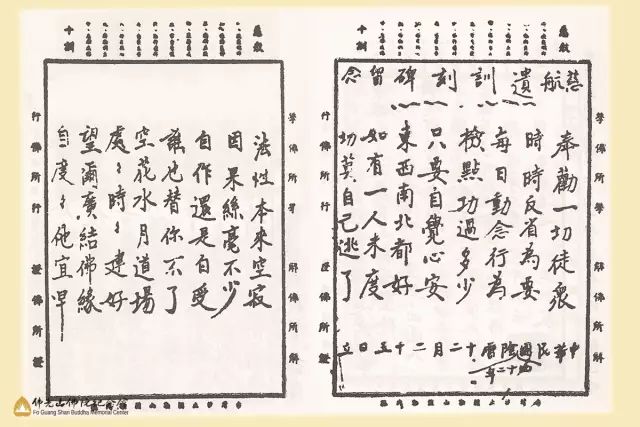 慈航遺訓刻碑留念
奉勸一切徒眾
時時反省為要
每日動念行為
檢點功過多少
只要自覺心安
東西南北都好
如有一人未度
切莫自己逃了
中華民國四十二年陰曆十二月二十五日立
學佛所學
解佛所解
行佛所行
證佛所證
慈航
十訓
法性本來空寂
因果絲毫不少
自作還是自受
誰也替你不了
空花水月道場
處〻時〻建好
望爾廣結佛緣
自度〻他宜早
學佛所學
解佛所解
行佛所行
證佛所證
十訓
佛光山佛陀紀念館
Fo Guang Shan Buddha Memorial Center